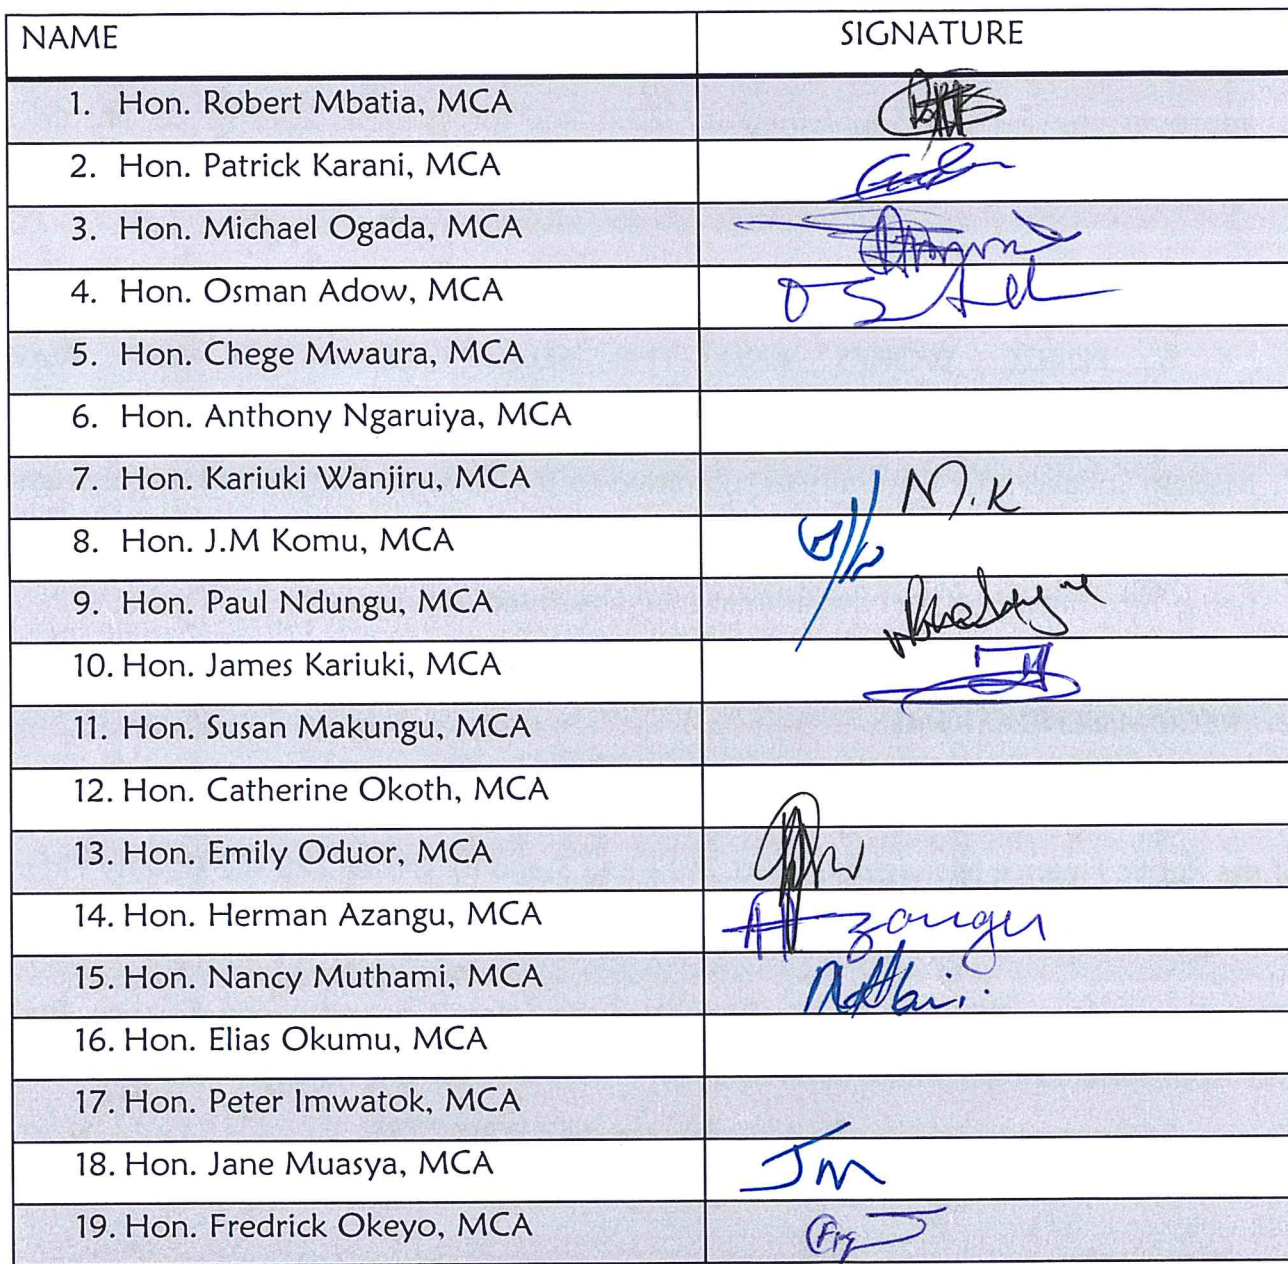 NAME SIGNATURE
1. Hon. Robert Mbatia, MCA
2. Hon. Patrick Karani, MCA
3. Hon. Michael Ogada, MCA
4. Hon. Osman Adow, MCA
5. Hon. Chege Mwaura, MCA
6. Hon. Anthony Ngaruiya, MCA
7. Hon. Kariuki Wanjiru, MCA N.K
8. Hon. J.M Komu, MCA
9. Hon. Paul Ndungu, MCA
10. Hon. James Kariuki, MCA
11. Hon. Susan Makungu, MCA
12. Hon. Catherine Okoth, MCA
13. Hon. Emily Oduor, MCA
14. Hon. Herman Azangu, MCA
15. Hon. Nancy Muthami, MCA
16. Hon. Elias Okumu, MCA
17. Hon. Peter Imwatok, MCA
18. Hon. Jane Muasya, MCA Jm
19. Hon. Fredrick Okeyo, MCA